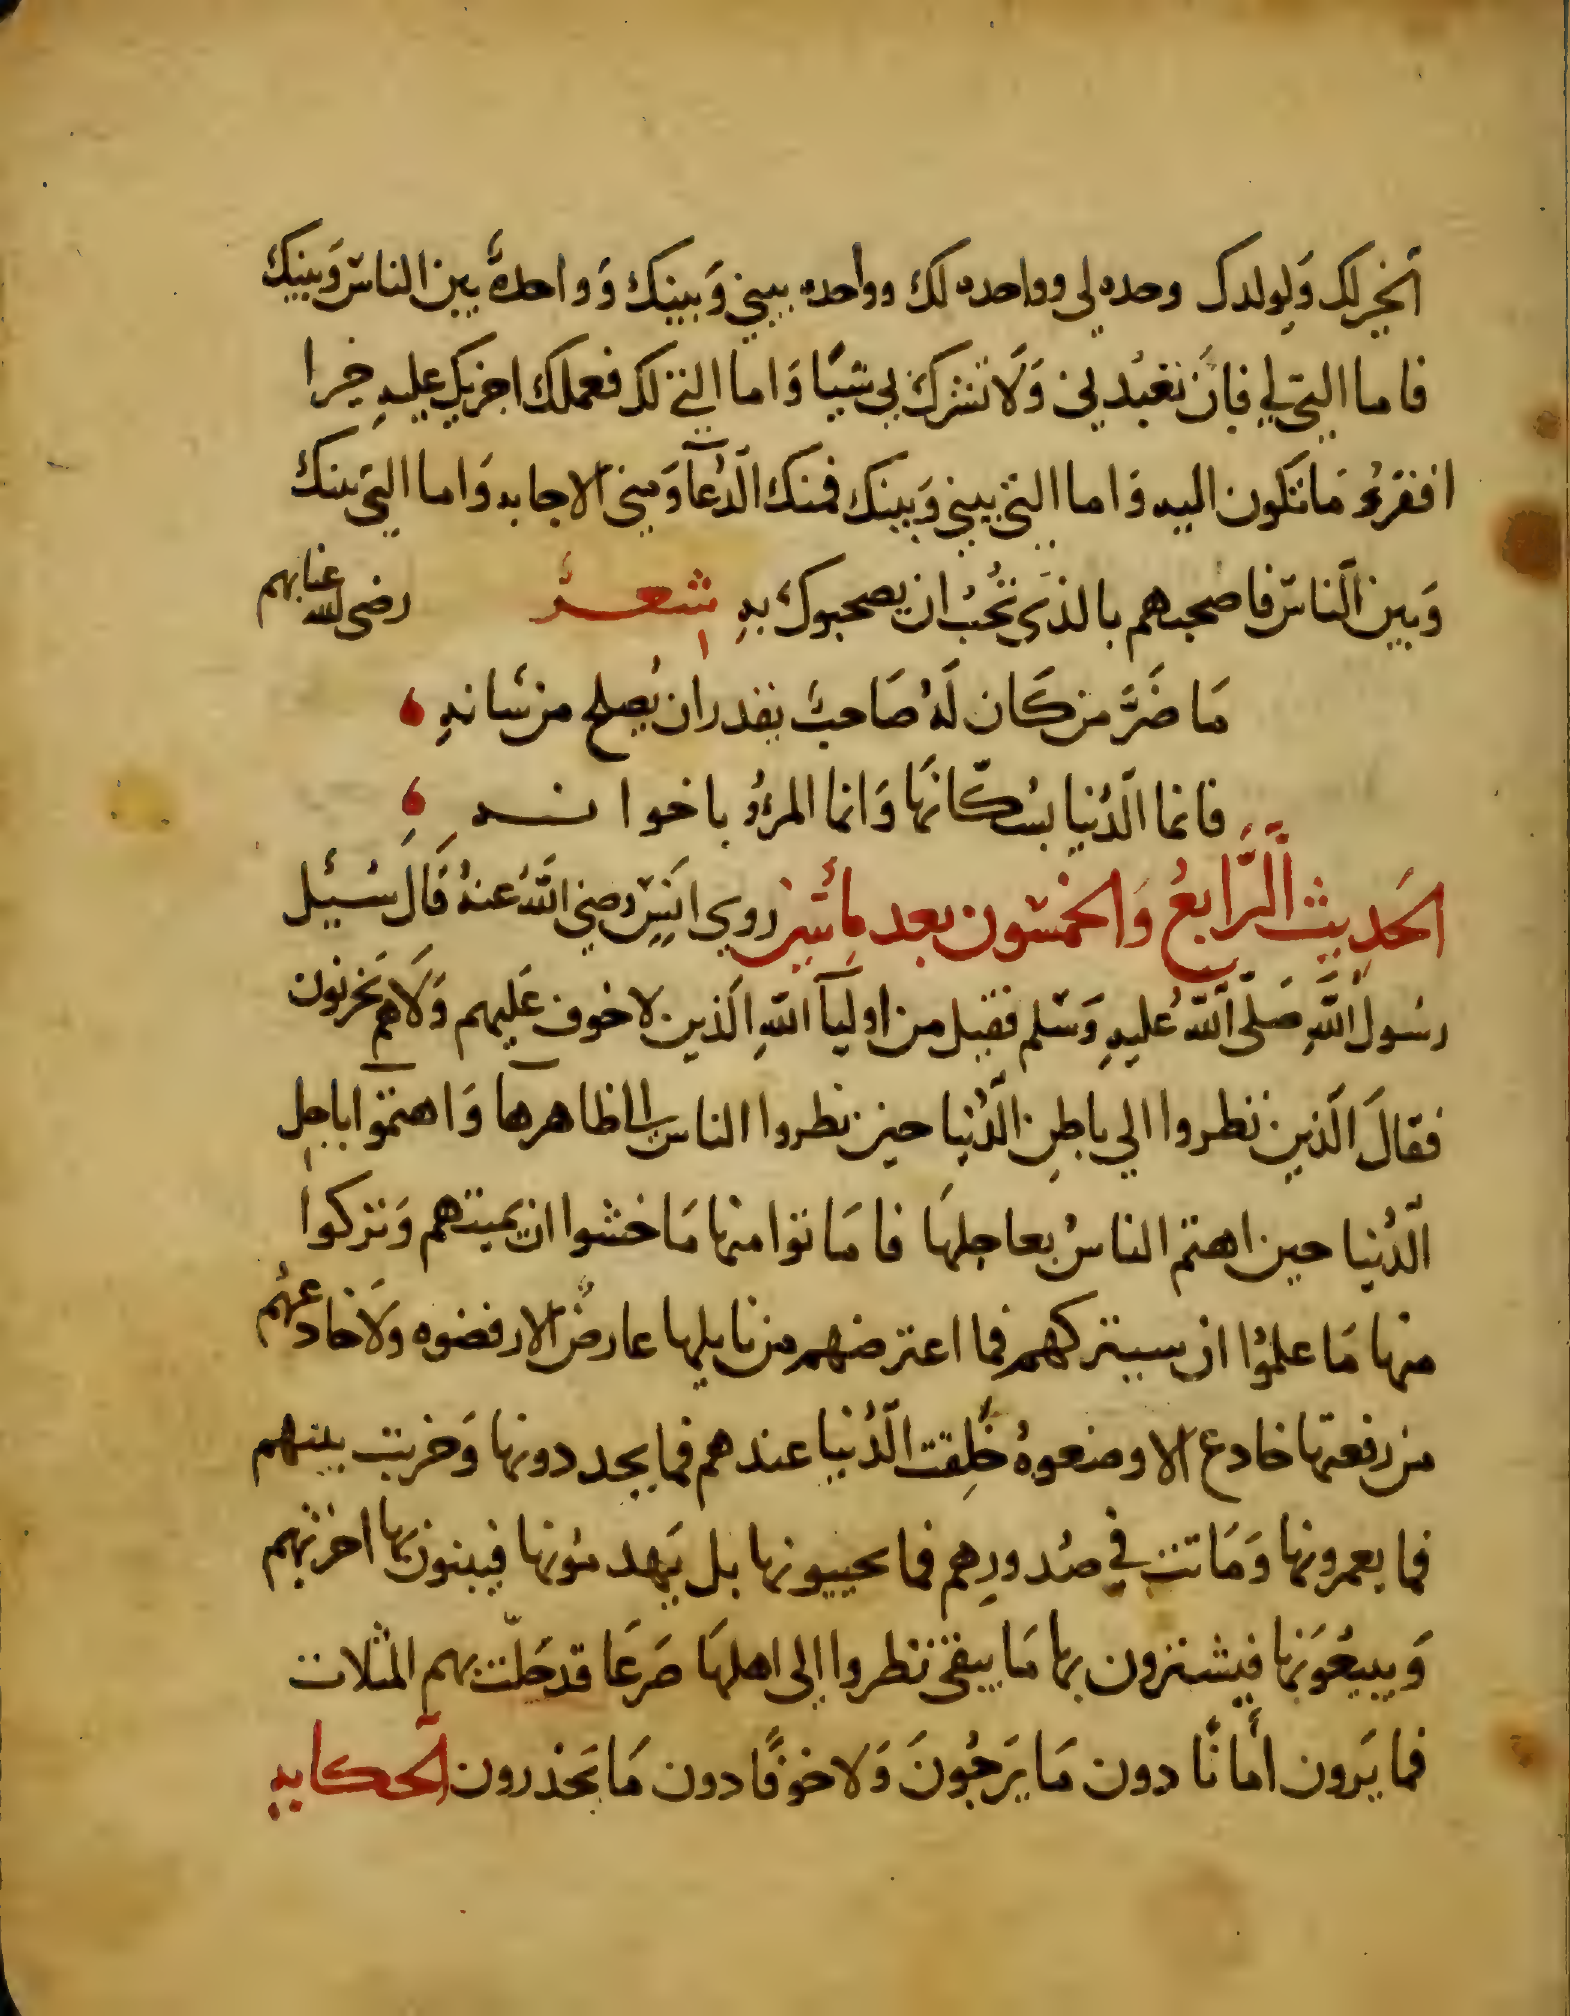 الخير لك وَلِولدك وحده لى وواحده لك وواحده بينيٖ وَبينك وَواحدةٌ بين الناس وَبينك
فاما التي لي فاَن تعبُدني وَلَا تشرك بي شيًا وَاما التي لك فعملك اجزيك عليهِ خيرا
افقرُ مَا تكون اليه وَاما التي بيني وَبينك فمنك الدُّعآ وَمِني الاجابه وَاما التي بينك
وَبين الناسّ فاصحبهم بالذي تُحبُ ان يصحبوك بهِ شعــرٌ رضى الله عنا بهم
مَا ضَرَّ من كَان لَهُ صَاحبٌ يقدر ان يُصلح من شانهِ
فانما الّدُنيا بسُكّانَها وَانما المرءُ باخوانــه
الحَدِيث الرَّابعُ وَالخمسّون بعد مِائَتين روي انَسّ رضي اللَّهُ عنهُ قَالَ سُئيل
رسُول اللَّهِ صَلّى اللّه عُليهِ وَسّلم فقيل من اوليآ اللّهِ الّذين لا خوف عَليهم وَلَاهم يَحزنون
فقالَ الّذين نظروا الي باطِن الّدُنيا حين نظروا الناس الى ظاهرها وَاهتمّوا باجلِ
الّدُنيا حين اهتم الناسُ بعاجلهَا فامَا توا منها مَا خشوا ان يميتهم وَتركوا
منها مَا علموُا ان سيتركهم فما اعترضهم من نايلها عارضٌ الا رفضوه ولَا خادعهُم
من رفعتها خادع الا وضعوهُ خُلِقت الّدُنيا عندهم فما يجددونها وَخربت بينهم
فما يعمرونها وَمَاتت في صُدورِهم فما يحييونها بل يَهدمُونها فيبنون بها اخرتهم
وَيبيعُوَنها فيشترون بها مَا يبقى نظروا إلى اهلهَا صَرعَا قد حَلّت بهم المُثلات
فما يَرون أَمانًا دون مَا يَرجُونَ وَلا خوفًا دون مَا يَحذرون الحكايهِ